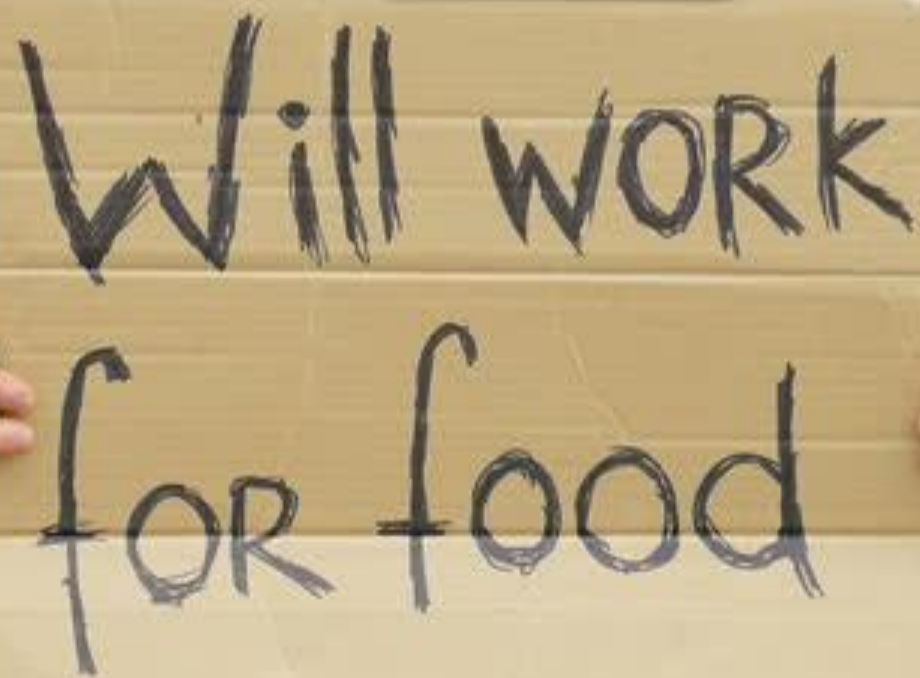 Will woRk
foR food